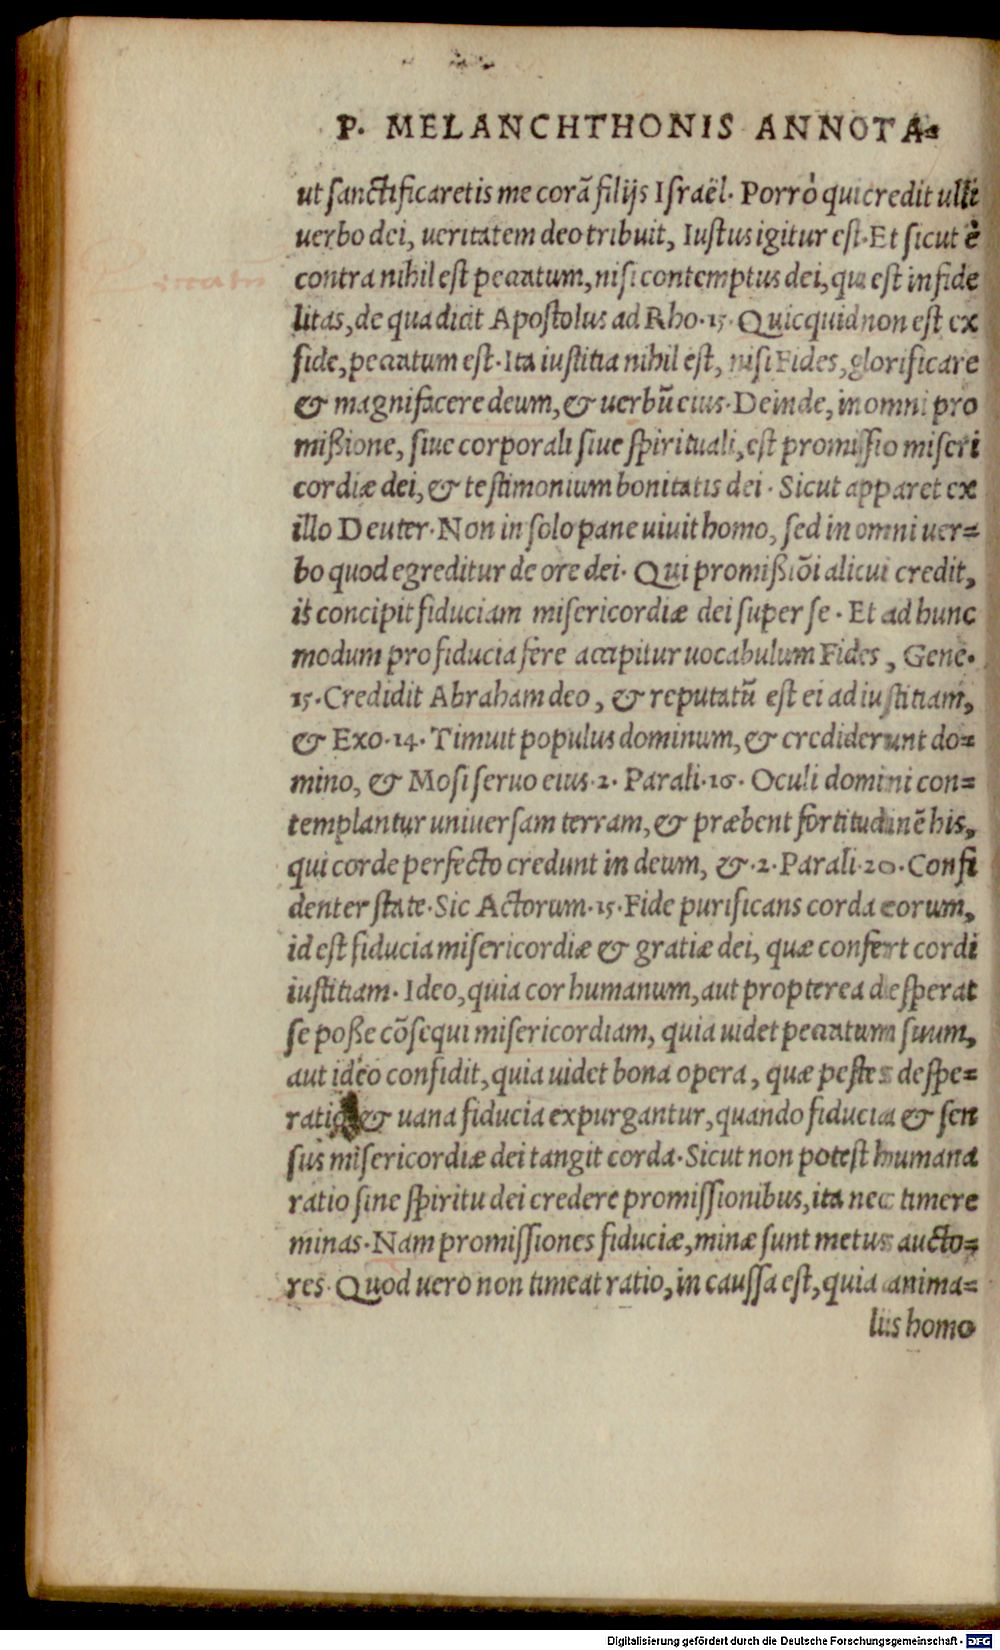 P. MELANCHTHONIS ANNOTA-
ut sanctificaretis me corā filijs Israël. Porrò qui credit ulli
uerbo dei, ueritatem deo tribuit, Iustus igitur est. Et sicut è
contra nihil est peccatum, nisi contemptus dei, qui est infide
litas, de qua dicit Apostolus ad Rho. 15. Quicquid non est ex
fide, peccatum est. Ita iustitia nihil est, nisi Fides, glorificare
& magnifacere deum, & uerbū eius. Deinde, in omni pro
mißione, siue corporali siue spirituali, est promissio miseri
cordiæ dei, & testimonium bonitatis dei. Sicut apparet ex
illo Deuter. Non in solo pane uiuit homo, sed in omni uer=
bo quod egreditur de ore dei. Qui promißiōi alicui credit,
is concipit fiduciam misericordiæ dei super se. Et ad hunc
modum pro fiducia fere accipitur uocabulum Fides, Gene.
15. Credidit Abraham deo, & reputatū est ei ad iustitiam,
& Exo. 14. Timuit populus dominum, & crediderunt do=
mino, & Mosi seruo eius. 2. Parali. 16. Oculi domini con=
templantur uniuersam terram, & præbent fortitudinē his,
qui corde perfecto credunt in deum, &. 2. Parali. 20. Confi
denter state. Sic Actorum. 15. Fide purificans corda eorum,
id est fiducia misericordiæ & gratiæ dei, quæ confert cordi
iustitiam. Ideo, quia cor humanum, aut propterea desperat
se poße cōsequi misericordiam, quia uidet peccatum suum,
aut ideo confidit, quia uidet bona opera, quæ pestes despe=
ratio & uana fiducia expurgantur, quando fiducia & sen
sus misericordiæ dei tangit corda. Sicut non potest humana
ratio sine spiritu dei credere promissionibus, ita nec timere
minas. Nam promissiones fiduciæ, minæ sunt metus aucto=
res. Quod uero non timeat ratio, in caussa est, quia anima=
lis homo
Digitalisierung gefördert durch die Deutsche Forschungsgemeinschaft - DFG